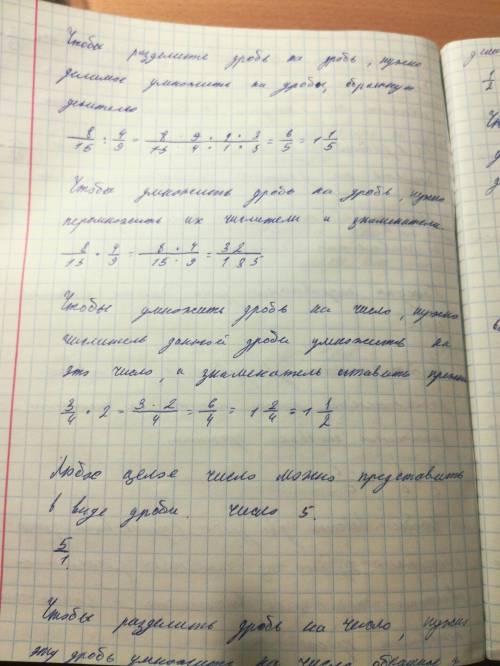 Чтобы разделить дробь на дробь, нужно
делимое умножить на дробь, обратную
делителю
8/15 : 4/9 = 8 · 9 / 15 · 4 · 2 · 3 / 1 · 5 = 6/5 = 1 1/5
Чтобы умножить дробь на дробь, нужно
перемножить их числители и знаменатели
8/15 · 4/9 = 8 · 4 / 15 · 9 = 32/135
Чтобы умножить дробь на число, нужно
числитель данной дроби умножить на
это число, а знаменатель оставить
3/4 · 2 = 3 · 2 / 4 = 6/4 = 1 2/4 = 1 1/2
Любое целое число можно представить
в виде дроби. Число 5.
5/1.
Чтобы разделить дробь на число, нужно
эту дробь умножить на число